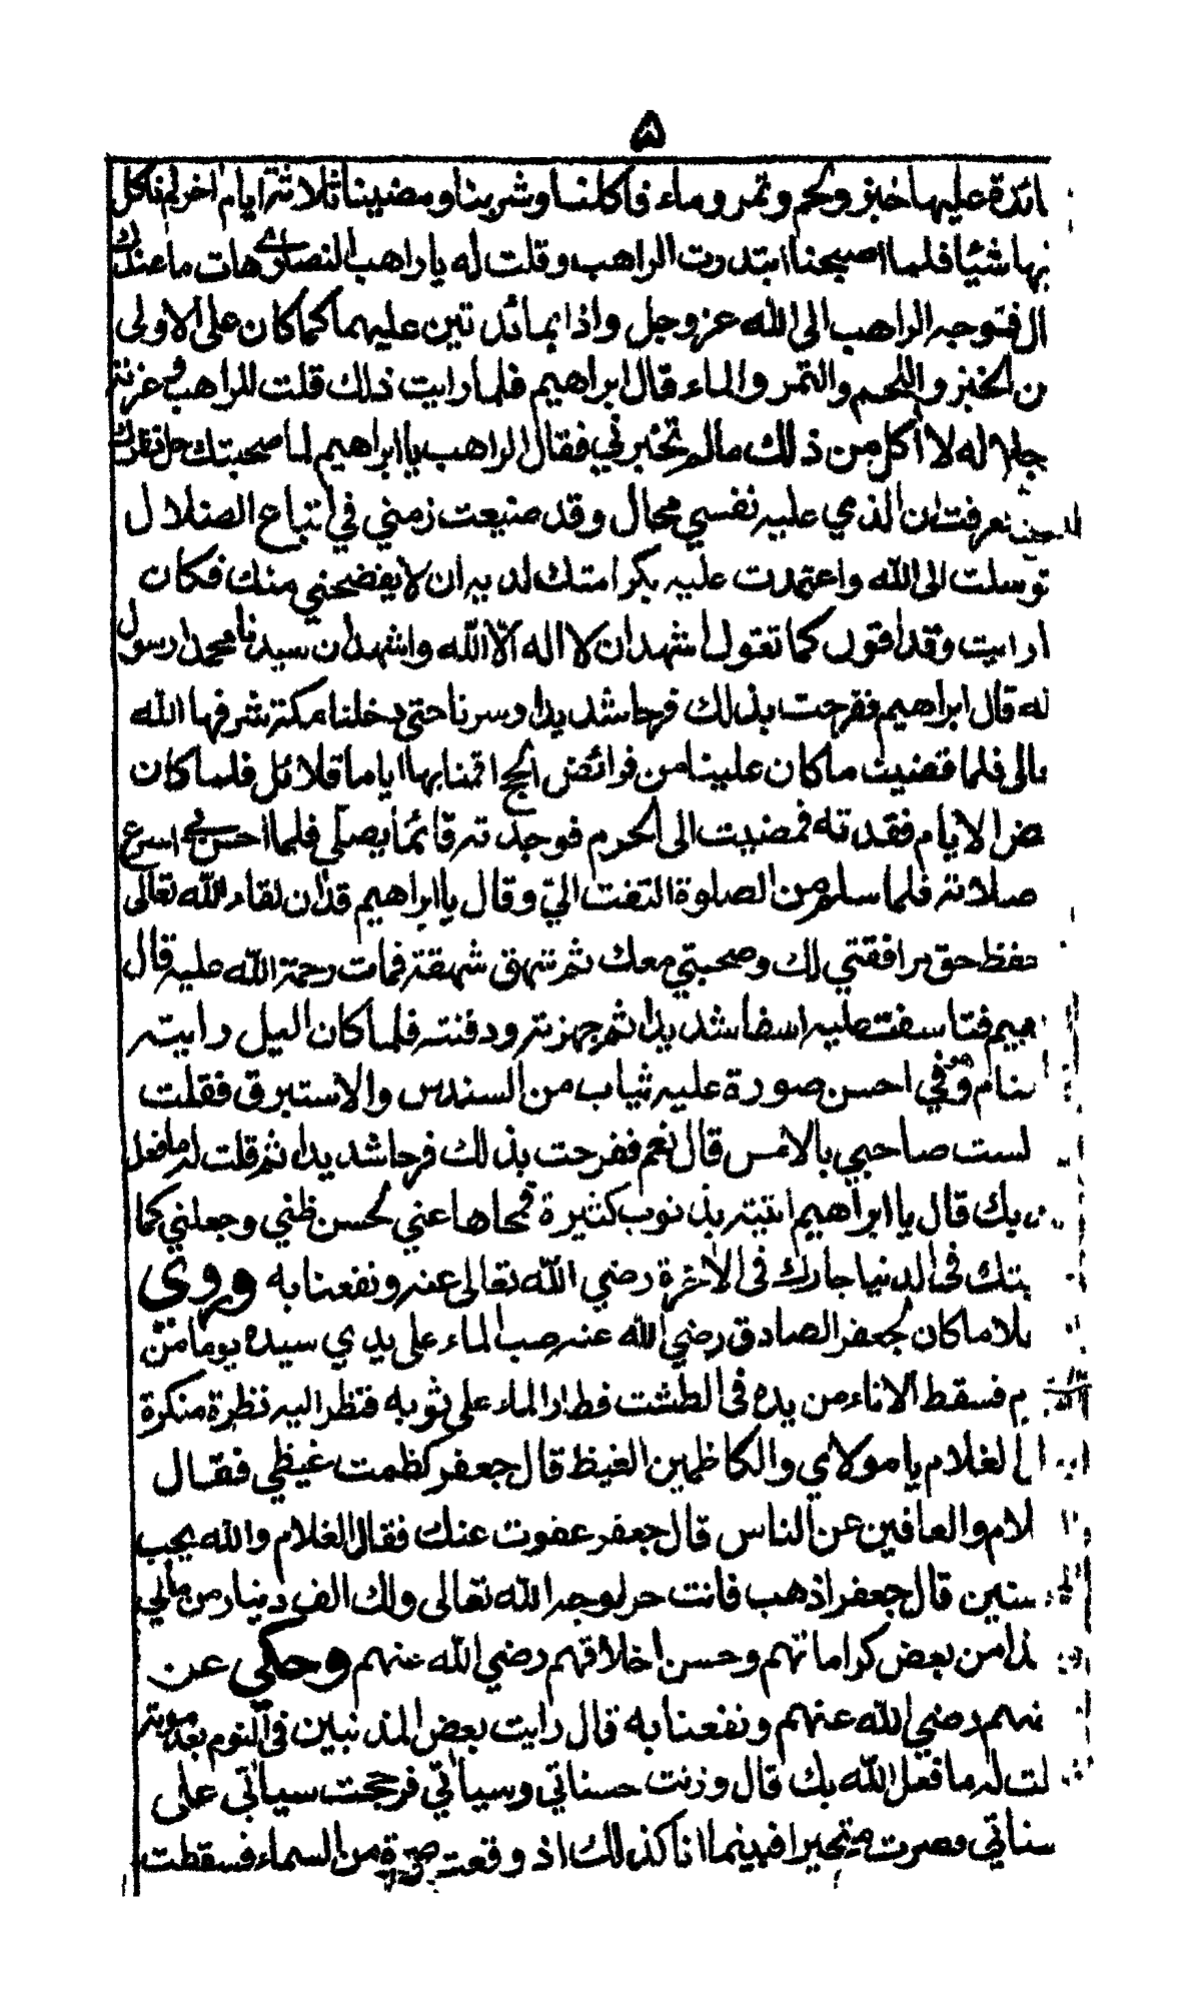 ٥
ائدة عليها خبز ولحم وتمر وماء فاكلنا وشربنا ومضينا ثلاثة ايام اخر لم ناكل
بها شيئا فلما اصبحنا ابتدرت الراهب وقلت له يا راهب النصارى هات ما عندك
ال فتوجه الراهب الى الله عز وجل واذا بمائد تين عليهما كما كان على الاولى
ن الخبز واللحم والتمر والماء قال ابراهيم فلما رايت ذلك قلت للراهب وعزته
جلاله لا أكل من ذلك مالم تخبرني فقال الراهب يا ابراهيم لما صحبتك
عرفت ان الذي عليه نفسي محال وقد ضيعت زمني في اتباع الضلال
توسلت الى الله واعتمدت عليه بكرامتك لديه ان لا يفضحني منك فكان
ا رايت وقد اقول كما تقول اشهد ان لا اله الا الله واشهد ان سيدنا محمدا رسول
له قال ابراهيم ففرحت بذلك فرحا شديدا وسرنا حتى دخلنا مكة شرفها الله
عالى فلما قضيت ما كان علينا من فرائض الحج اقمنا بها اياما قلائل فلما كان
ض الايام فقدته فمضيت الى الحرم فوجدته قائما يصلي فلما احس بي اسرع
صلاته فلما سلم من الصلوة التفت الي وقال يا ابراهيم قد ان لقاء الله تعالى
حفظ حق مرافقتي لك وصحبتي معك ثم شهق شهقة فمات رحمة الله عليه قال
هيم فتاسفت عليه اسفا شديدا ثم جهزته ودفنته فلما كان اليل رايته
منام وهو في احسن صورة عليه ثياب من السندس والاستبرق فقلت
لست صاحبي بالامس قال نعم ففرحت بذلك فرحا شديدا ثم قلت له ما فعل
بك قال يا ابراهيم اتيته بذنوب كثيرة فمحاها عني لحسن ظني وجعلني كما
بتك فى الدنيا جارك فى الاخرة رضي الله تعالى عنه ونفعنا به وروى
لاما كان لجعفر الصادق رضي الله عنه صب الماء على يدي سيده يوما من
م فسقط الاناء من يده فى الطشت فطار الماء على ثوبه فنظر اليه نظرة منكرة
ال الغلام يا مولاي والكاظمين الغيظ قال جعفر كظمت غيظي فقال
لام والعافين عن الناس قال جعفر عفوت عنك فقال الغلام والله يحب
سنين قال جعفر اذهب فانت حر لوجه الله تعالى ولك الف دينار من مالي
ذا من بعض كراماتهم وحسن اخلاقهم رضي الله عنهم وحكى عن
نهم رضي الله عنهم ونفعنا به قال رايت بعض المذنبين فى النوم بعد موته
لت له ما فعل الله بك قال وزنت حسناتي وسيأتي فرجحت سيأتي على
سناتي وصرت متحيرا فبينما انا كذلك اذ وقعت صرة من السماء فسقطت